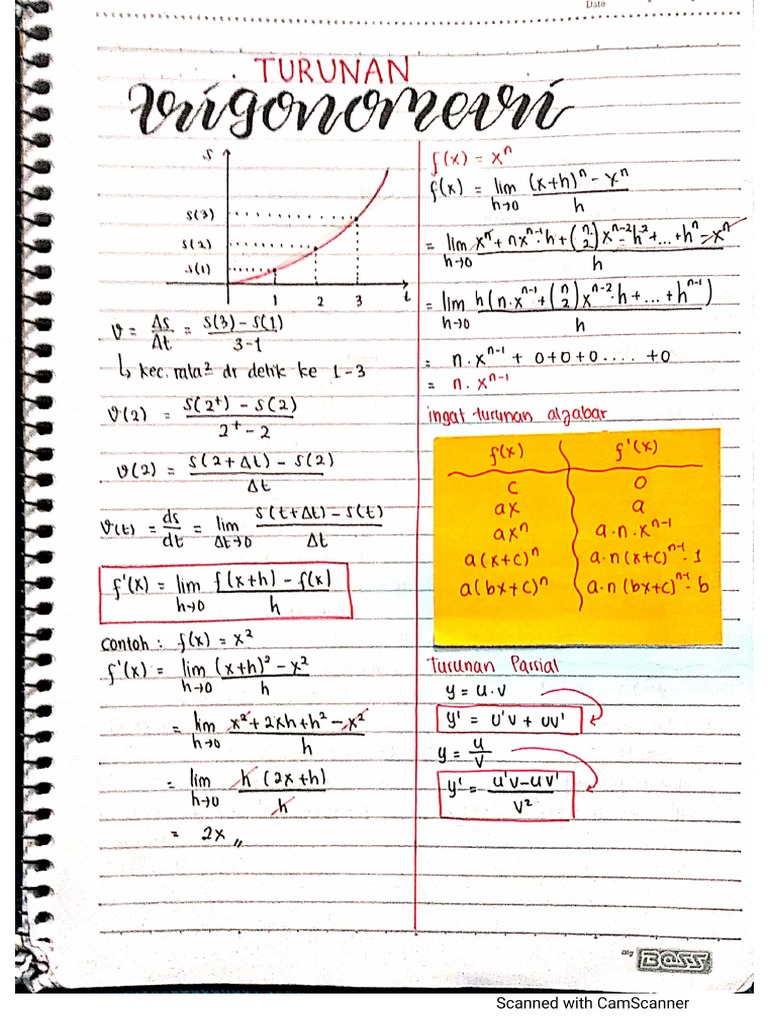 Date
TURUNAN
trigonometri
s
s(3)
s(2)
s(1)
1 2 3 t
v = Δs/Δt = (s(3) - s(1))/(3-1)
↳ kec. rata² dr detik ke 1-3
v(2) = (s(2⁺) - s(2))/(2⁺ - 2)
v(2) = (s(2+Δt) - s(2))/Δt
v(t) = ds/dt = lim Δt→0 (s(t+Δt) - s(t))/Δt
f'(x) = lim h→0 (f(x+h) - f(x))/h
contoh : f(x) = x²
f'(x) = lim h→0 ((x+h)² - x²)/h
= lim h→0 (x² + 2xh + h² - x²)/h
= lim h→0 h (2x+h)/h
= 2x,,
f(x) = xⁿ
f(x) = lim h→0 ((x+h)ⁿ - xⁿ)/h
= lim h→0 (xⁿ + nxⁿ⁻¹·h + (n 2) xⁿ⁻²·h² + ... + hⁿ - xⁿ)/h
= lim h→0 h(n·xⁿ⁻¹ + (n 2) xⁿ⁻²·h + ... + hⁿ⁻¹)/h
= n·xⁿ⁻¹ + 0+0+0.... +0
= n·xⁿ⁻¹
ingat turunan aljabar
f(x) f'(x)
c 0
ax a
axⁿ a·n·xⁿ⁻¹
a(x+c)ⁿ a·n(x+c)ⁿ⁻¹·1
a(bx+c)ⁿ a·n(bx+c)ⁿ⁻¹·b
Turunan Parsial
y = u·v
y' = u'v + uv'
y = u/v
y' = (u'v - uv')/v²
my BOSS
Scanned with CamScanner